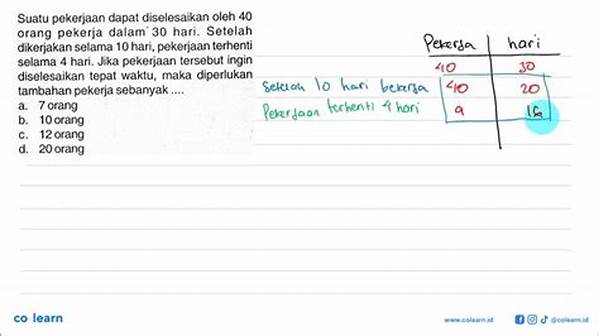 Suatu pekerjaan dapat diselesaikan oleh 40
orang pekerja dalam 30 hari. Setelah
dikerjakan selama 10 hari, pekerjaan terhenti
selama 4 hari. Jika pekerjaan tersebut ingin
diselesaikan tepat waktu, maka diperlukan
tambahan pekerja sebanyak ....
a. 7 orang
b. 10 orang
c. 12 orang
d. 20 orang
Pekerja hari
40 30
Setelah 10 hari bekerja 40 20
Pekerjaan terhenti 4 hari a 16
co learn
www.colearn.id @colearn.id